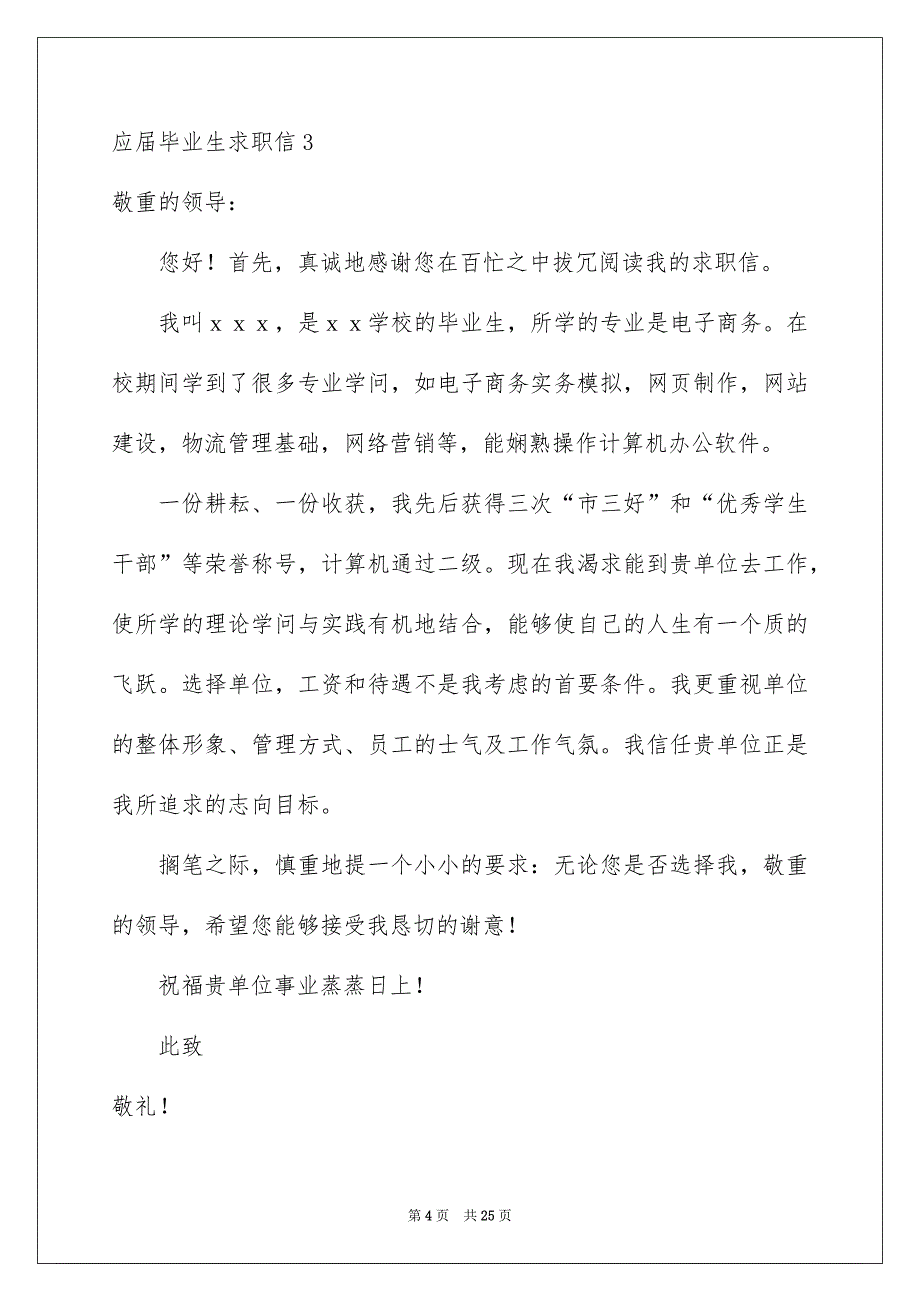 应届毕业生求职信 3
敬重的领导：
您好！首先，真诚地感谢您在百忙之中拔冗阅读我的求职信。
我叫ｘｘｘ，是ｘｘ学校的毕业生，所学的专业是电子商务。在
校期间学到了很多专业学问，如电子商务实务模拟，网页制作，网站
建设，物流管理基础，网络营销等，能娴熟操作计算机办公软件。
一份耕耘、一份收获，我先后获得三次“市三好”和“优秀学生
干部”等荣誉称号，计算机通过二级。现在我渴求能到贵单位去工作，
使所学的理论学问与实践有机地结合，能够使自己的人生有一个质的
飞跃。选择单位，工资和待遇不是我考虑的首要条件。我更重视单位
的整体形象、管理方式、员工的士气及工作气氛。我信任贵单位正是
我所追求的志向目标。
搁笔之际，慎重地提一个小小的要求：无论您是否选择我，敬重
的领导，希望您能够接受我恳切的谢意！
祝福贵单位事业蒸蒸日上！
此致
敬礼！
第 4 页 共 25 页